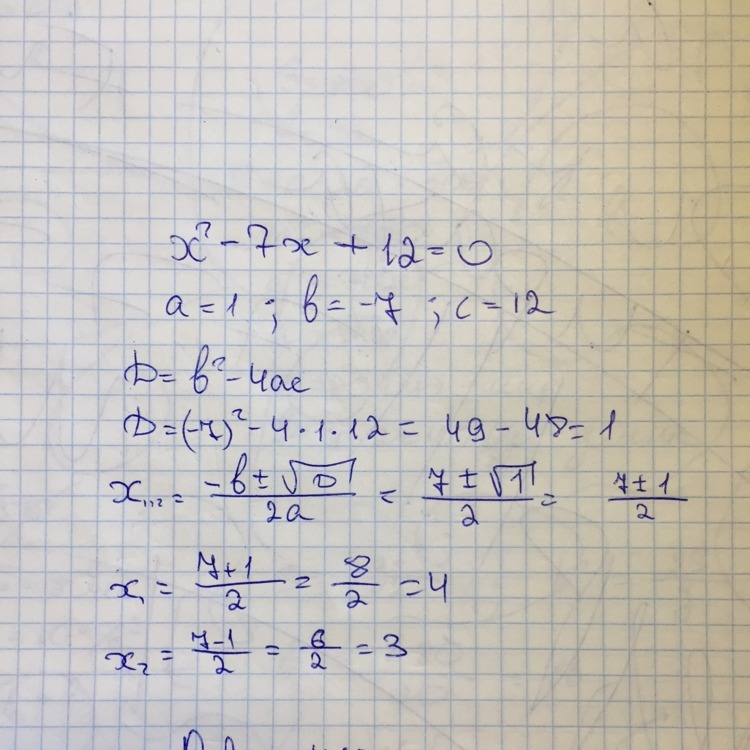 x² - 7x + 12 = 0
a = 1 ; b = -7 ; c = 12
D = b² - 4ac
D = (-7)² - 4 · 1 · 12 = 49 - 48 = 1
x₁,₂ = (-b ± √D)/2a = (7 ± √1)/2 = (7 ± 1)/2
x₁ = (7+1)/2 = 8/2 = 4
x₂ = (7-1)/2 = 6/2 = 3